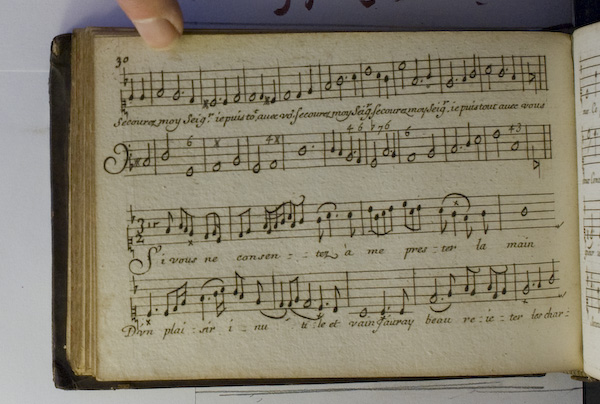 30
Secourez moy Seigr. ie puis tt. avec vo9. secourez moy Seigr. secourez moy Seigr. ie puis tout avec vous
6 x 4x 4 6 7 7 6 6 4 3
Si vous ne consen - - tez à me pres - ter la main
D'vn plai - sir i - nu - ti - le et vain J'auray beau re - ie - ter les char -